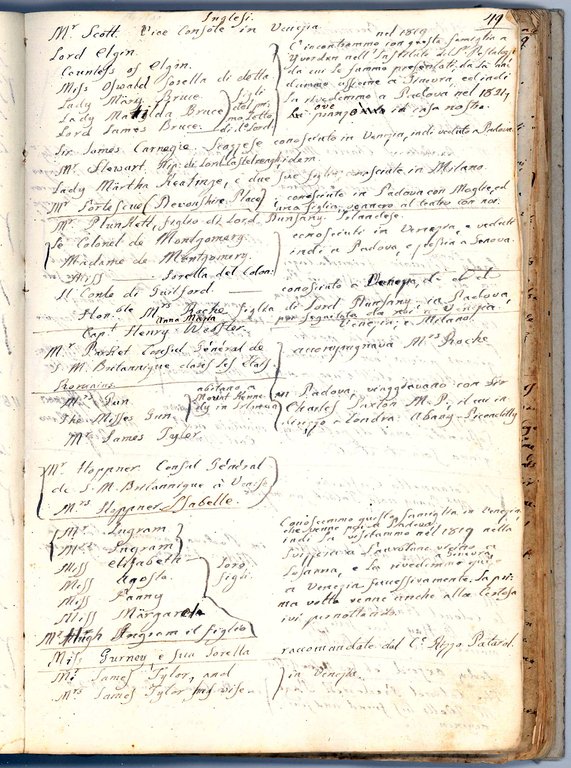 Inglesi.
49
Mr. Scott. Vice Console in Venezia
Lord Elgin.
Countess of Elgin.
Miss Oswald sorella di detta
Lady Mary Bruce
Lady Matilda Bruce
Lord James Bruce
figli
del pri
mo Letto
di do. Lord
nel 1819
C'incontrammo con questa famiglia a
Yverdun nell'Instituto del Sr. Pestalozzi
da cui le fummo presentati, da là
a Ginevra ed indi
la rivedemmo a Padova nel 1824
ove
in casa nostra.
Sir James Carnegie Scozzese conosciuto in Venezia, indi veduto a Padova
Mr. Stewart, Nip. di Lord Castelreagh, idem.
Lady Märtha Keatinge, e due sue figlie, conosciute in Milano.
Mr. Fortescue (Devonshire Place)
conosciuto in Padova con Moglie, ed
una figlia, vennero al teatro con noi.
Mr. Plunkett, figlio di Lord Dunsany. Irlandese.
Le Colonel de Montgomery.
Madame de Montgomery.
Miss — Sorella del Colon:
conosciuti in Venezia, e veduti
indi a Padova, e spesso a Genova.
Il Conte di Guilford.
conosciuto a Venezia,
Honble Mrs. Roche
Anna Maria
figlia di Lord Dunsany in Padova,
per seguitata da noi in Venezia
Venezia, e Milano.
Capt. Henry Wessler.
accompagnava Mrs. Roche
Mr. Parket Consul Général de
S. M. Britannique dans les Etats
Romains.
Mrs. Gun
The Misses Gun
Mr. James Tyler.
abitano a
Mount Kenne
dy in Irlanda
in Padova, viaggiavano con Sir
Charles Paxton M. P. il cui in
dirizzo è Londra: Albany-Piccadilly
Mr. Hoppner Consul Général
de S. M. Britannique à Venise
Mrs. Hoppner Isabelle.
Mr. Ingram
Mrs. Ingram
Miss Elisabeth
Miss Agosta.
Miss Fanny
Miss Märgareta
Mr. Hugh Ingram il figlio
loro
figli.
Conoscemmo questa famiglia in Venezia,
che venne poi a Padova,
indi la visitammo nel 1819 nella
Svizzera a Lausanne vicino a
Losanna, e la rivedemmo quivi
a Ginevra
a Venezia successivamente. La pri:
ma volta venne anche alla Certosa
ivi pernottando.
Miss Gurney e sua sorella
raccomandate dal Ce. Rizzo Patarol.
Mr. James Tylor, and
Mrs. James Tylor his wife.
in Venezia.